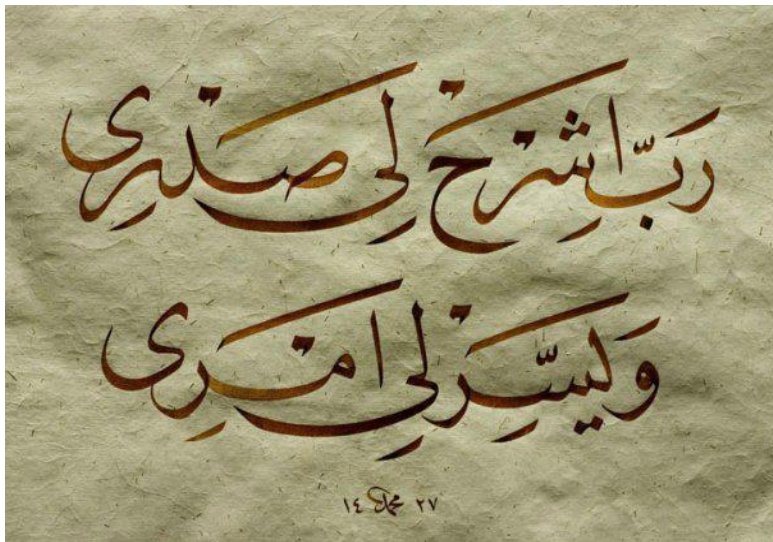 رَبِّ اشْرَحْ لِي صَدْرِي
وَيَسِّرْ لِي أَمْرِي
٢٧ محمد ١٤